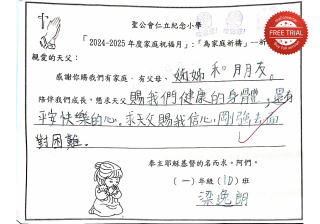 聖公會仁立紀念小學
「2024-2025年度家庭祝福月」:「為家庭祈禱」
FREE TRIAL
親愛的天父:
感謝你賜我們有家庭,有父母、姊姊和朋友。
陪伴我們成長。懇求天父賜我們健康的身體,還有
平安快樂的心。求天父賜我信心,剛強去面
對困難。
奉主耶穌基督的名而求。阿們。
(一)年級(1D)班
梁逸朗